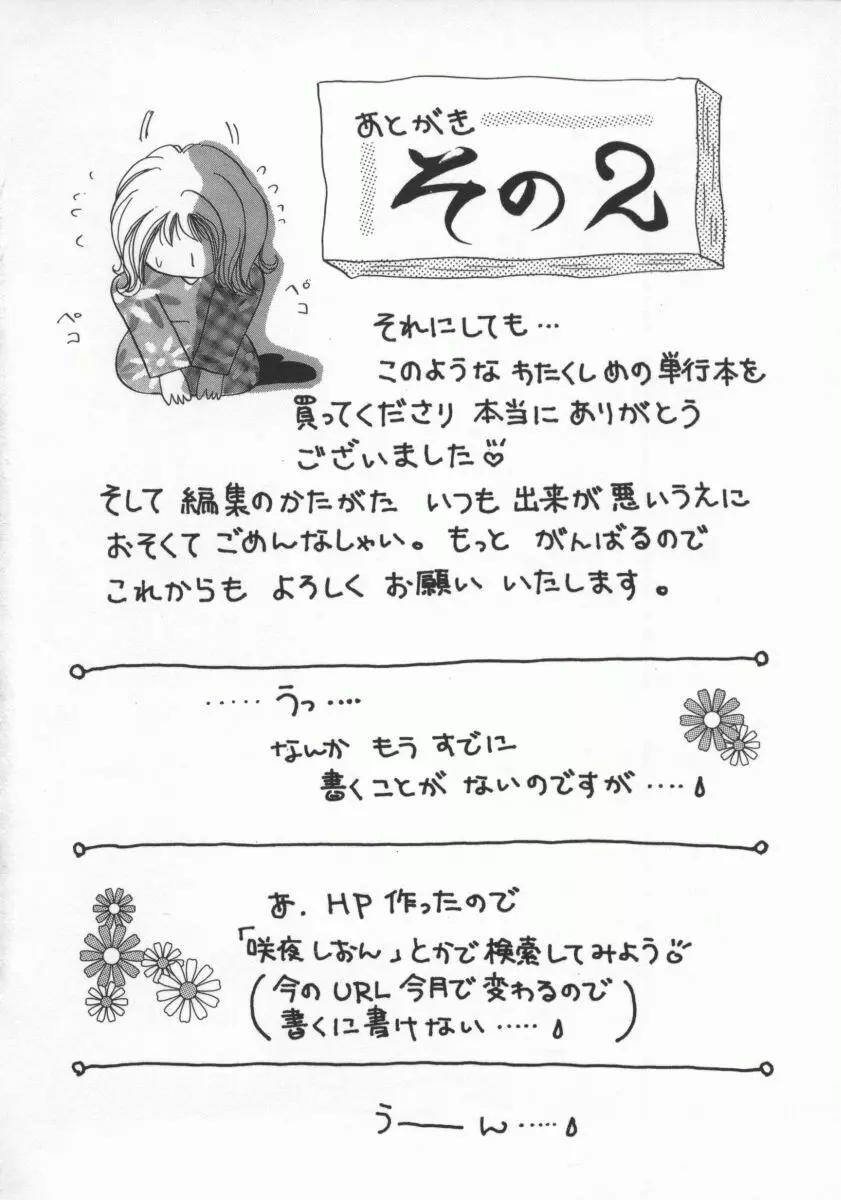 あとがき
その2
ペコ
ペコ
それにしても…
このような わたくしめの単行本を
買ってくださり 本当に ありがとう
ございました♡
そして 編集のかたがた いつも 出来が 悪いうえに
おそくて ごめんなしゃい。もっと がんばるので
これからも よろしく お願い いたします。
‥‥‥うっ‥‥
なんか もう すでに
書くことが ないのですが‥‥
あ. HP 作ったので
「咲夜 しおん」とかで検索してみよう
(今の URL 今月で 変わるので
書くに書けない‥‥‥)
うーーん‥‥‥